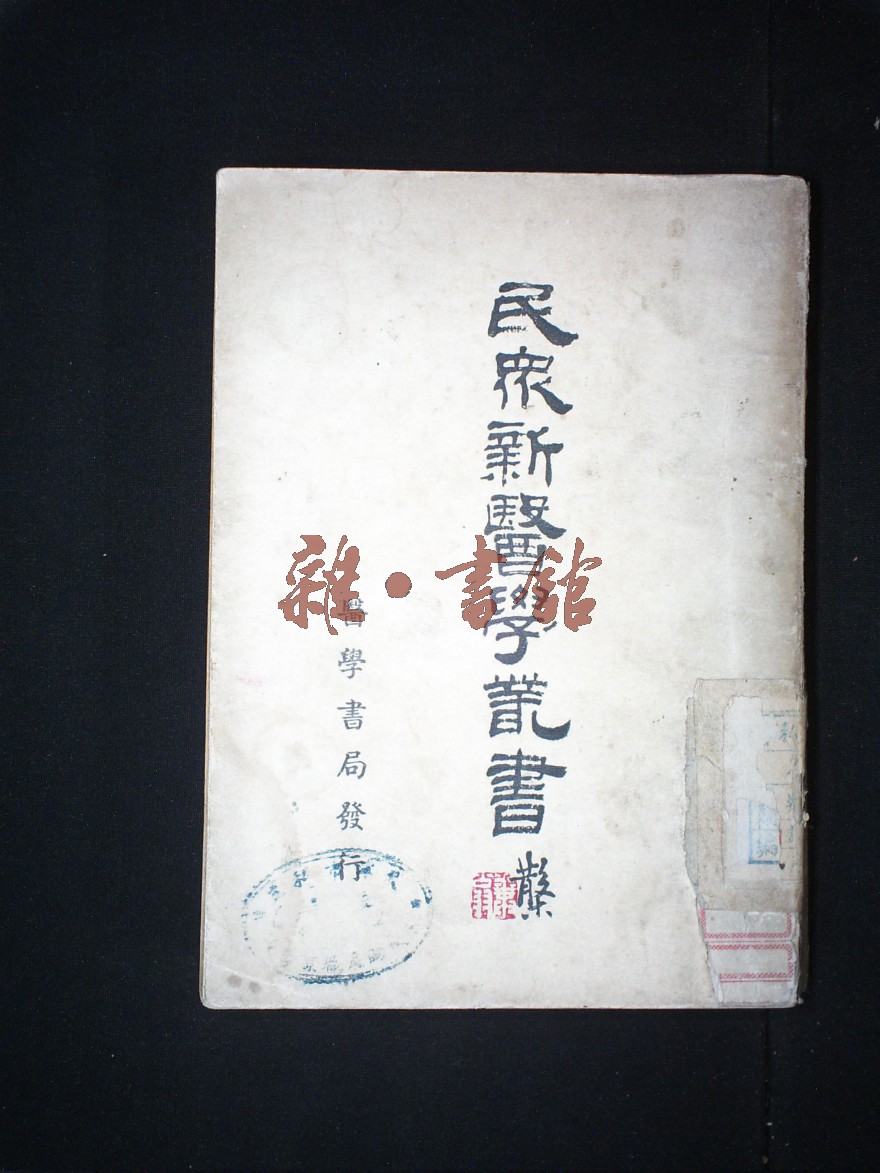 民衆新醫學叢書
醫學書局發行
雜·書館